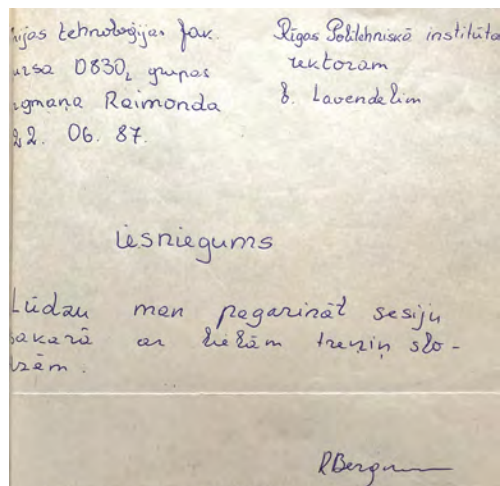 ijas tehnoloģijas fak.
ursa 0830₂ grupas
gmaņa Raimonda
22. 06. 87.
Rīgas Politehniskā institūta
rektoram
E. Lavendelim
iesniegums
Lūdzu man pagarināt sesiju
sakarā ar lielām treniņ slo-
dzēm.
RBergm